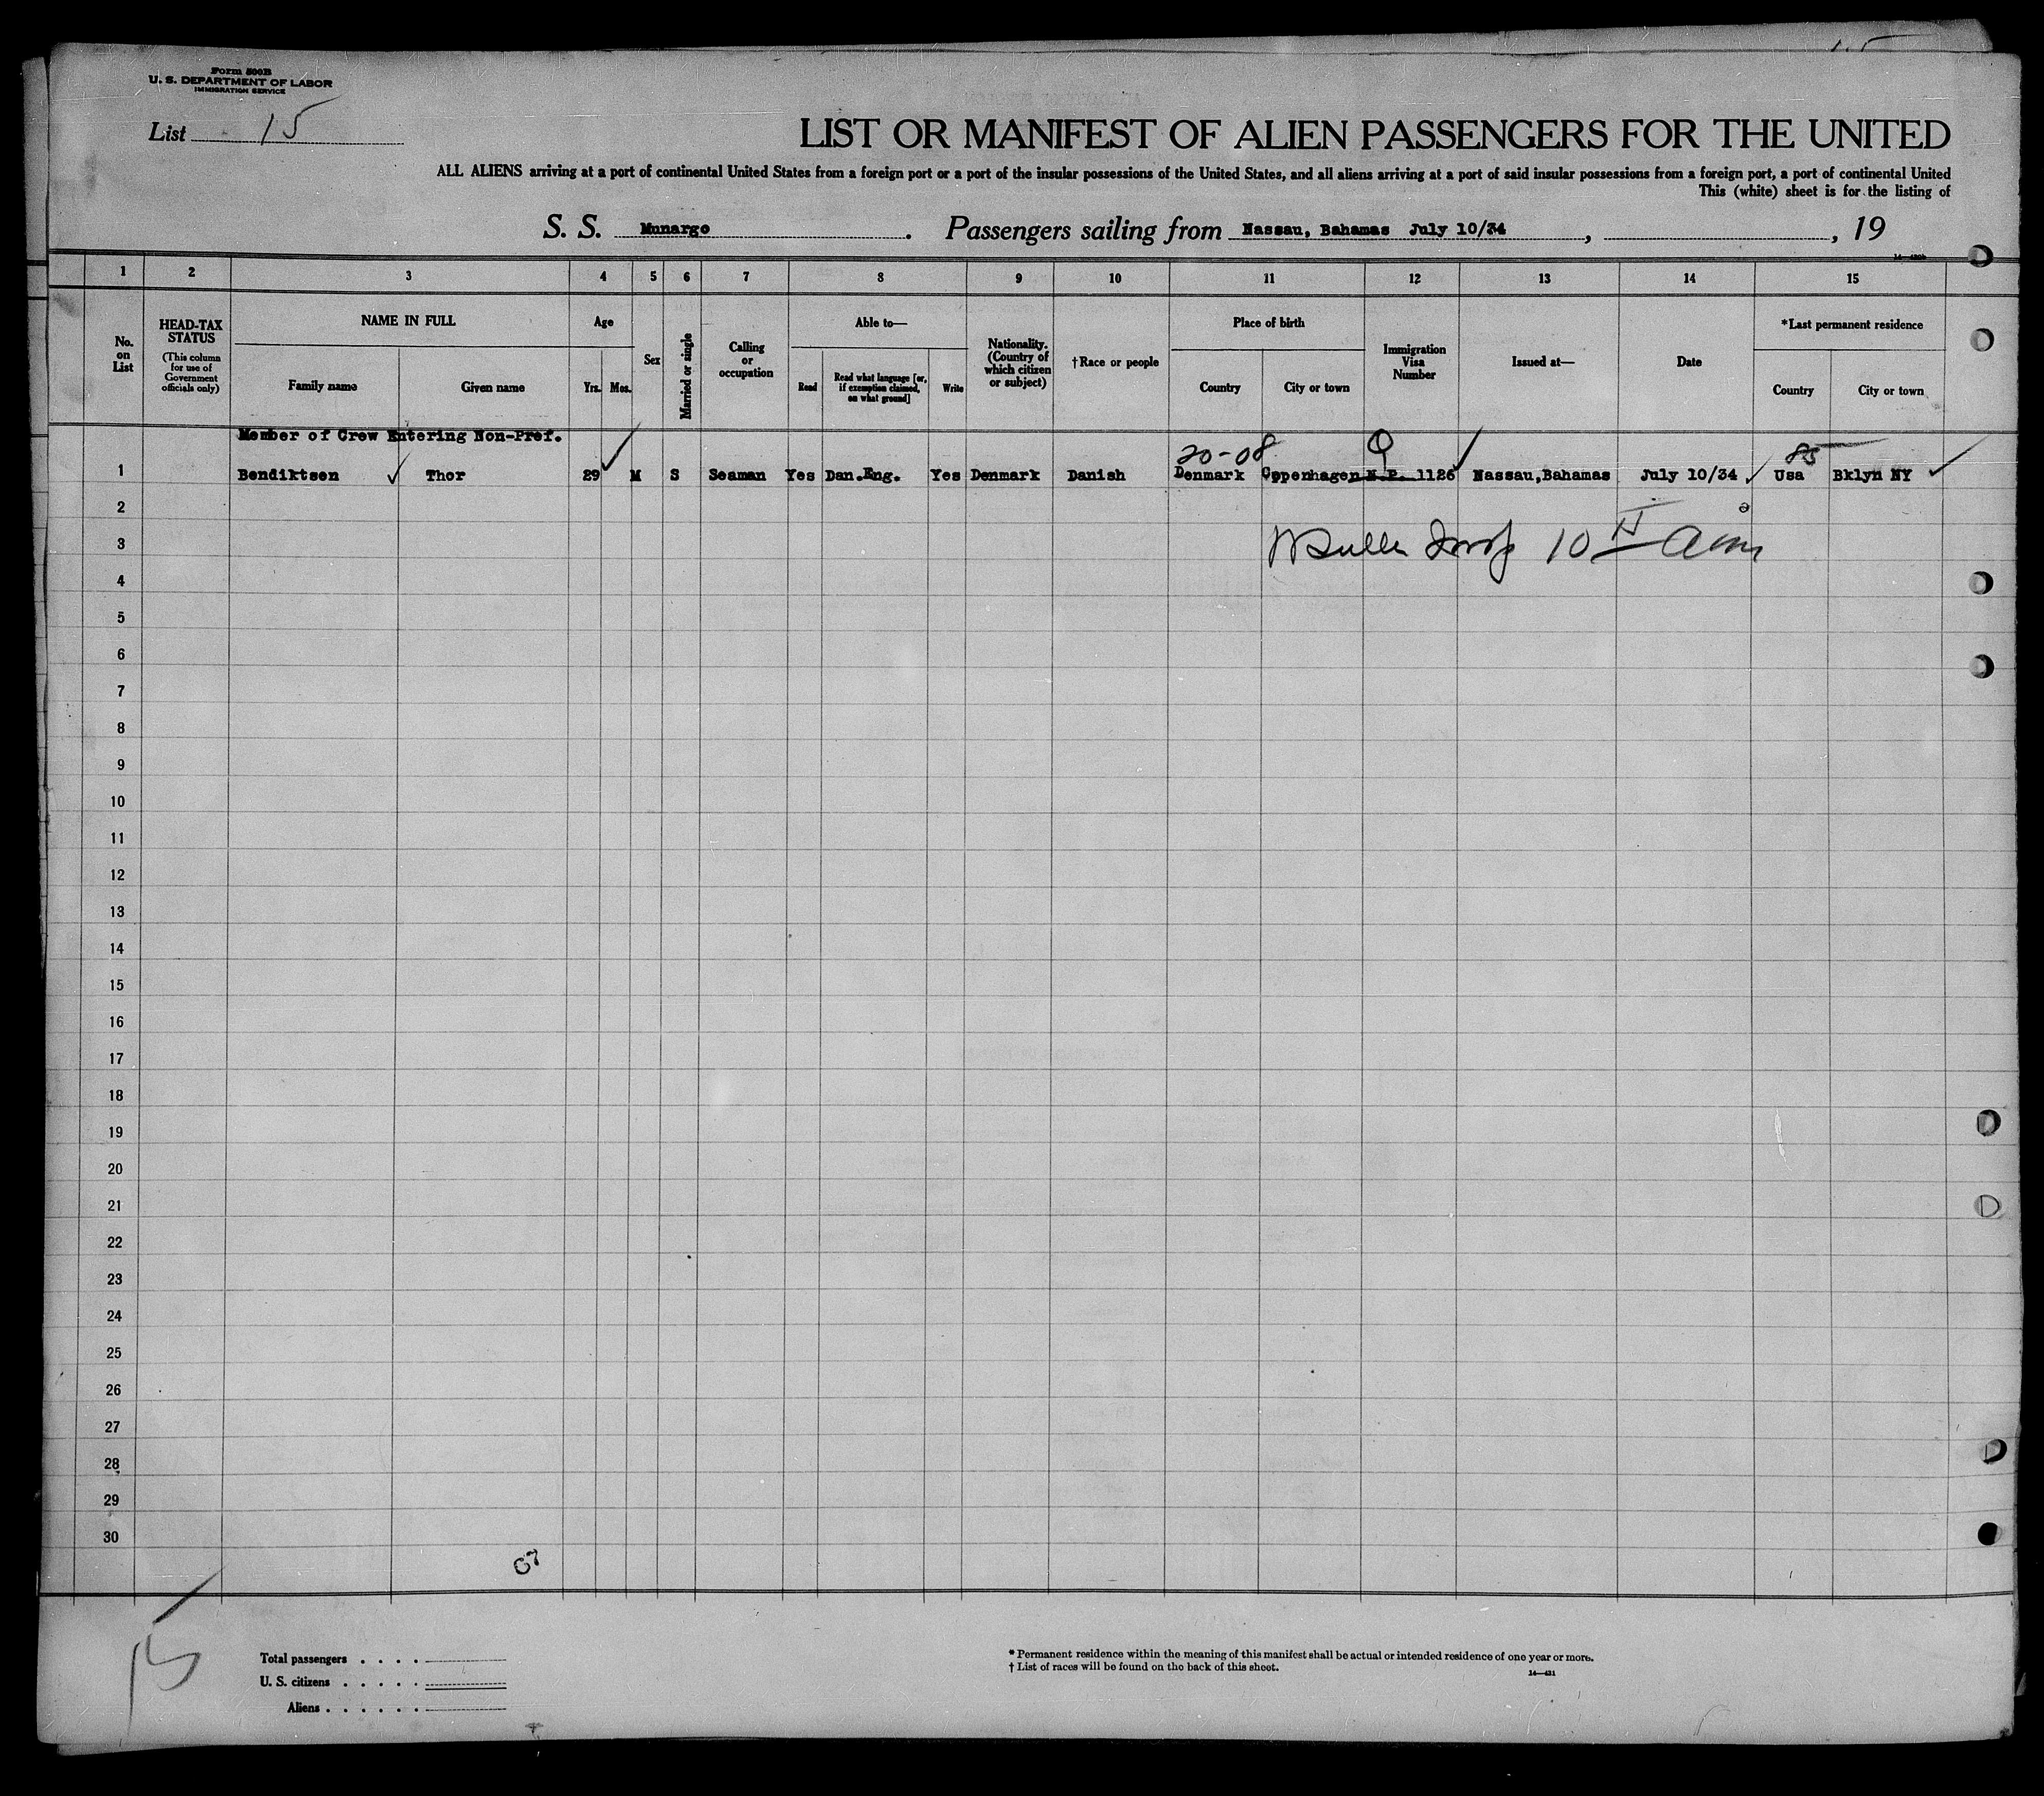 Form 500B
U. S. DEPARTMENT OF LABOR
IMMIGRATION SERVICE
List 15
LIST OR MANIFEST OF ALIEN PASSENGERS FOR THE UNITED
ALL ALIENS arriving at a port of continental United States from a foreign port or a port of the insular possessions of the United States, and all aliens arriving at a port of said insular possessions from a foreign port, a port of continental United
This (white) sheet is for the listing of
S. S. Munargo. Passengers sailing from Nassau, Bahamas July 10/34, , 19
1 2 3 4 5 6 7 8 9 10 11 12 13 14 15
No. on List
HEAD-TAX STATUS
(This column for use of Government officials only)
NAME IN FULL
Family name Given name
Age
Yrs. Mos.
Sex
Married or single
Calling or occupation
Able to—
Read
Read what language [or, if exemption claimed, on what ground]
Write
Nationality. (Country of which citizen or subject)
†Race or people
Place of birth
Country City or town
Immigration Visa Number
Issued at—
Date
*Last permanent residence
Country City or town
Member of Crew Entering Non-Pref.
20-08 Q 85
1 Bendiktsen Thor 29 M S Seaman Yes Dan.Eng. Yes Denmark Danish Denmark Copenhagen N.P. 1126 Nassau,Bahamas July 10/34 Usa Bklyn NY
2
3 10
4
5
6
7
8
9
10
11
12
13
14
15
16
17
18
19
20
21
22
23
24
25
26
27
28
29
30
15
Total passengers . . . .
U. S. citizens . . . . .
Aliens . . . . . .
* Permanent residence within the meaning of this manifest shall be actual or intended residence of one year or more.
† List of races will be found on the back of this sheet.
14—421